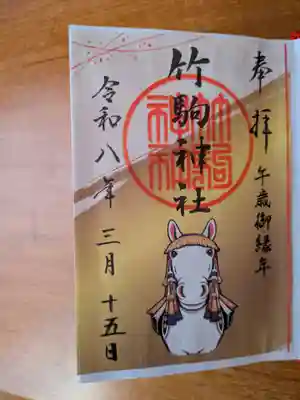 奉拝
午歳御縁年
竹駒神社
令和八年三月十五日